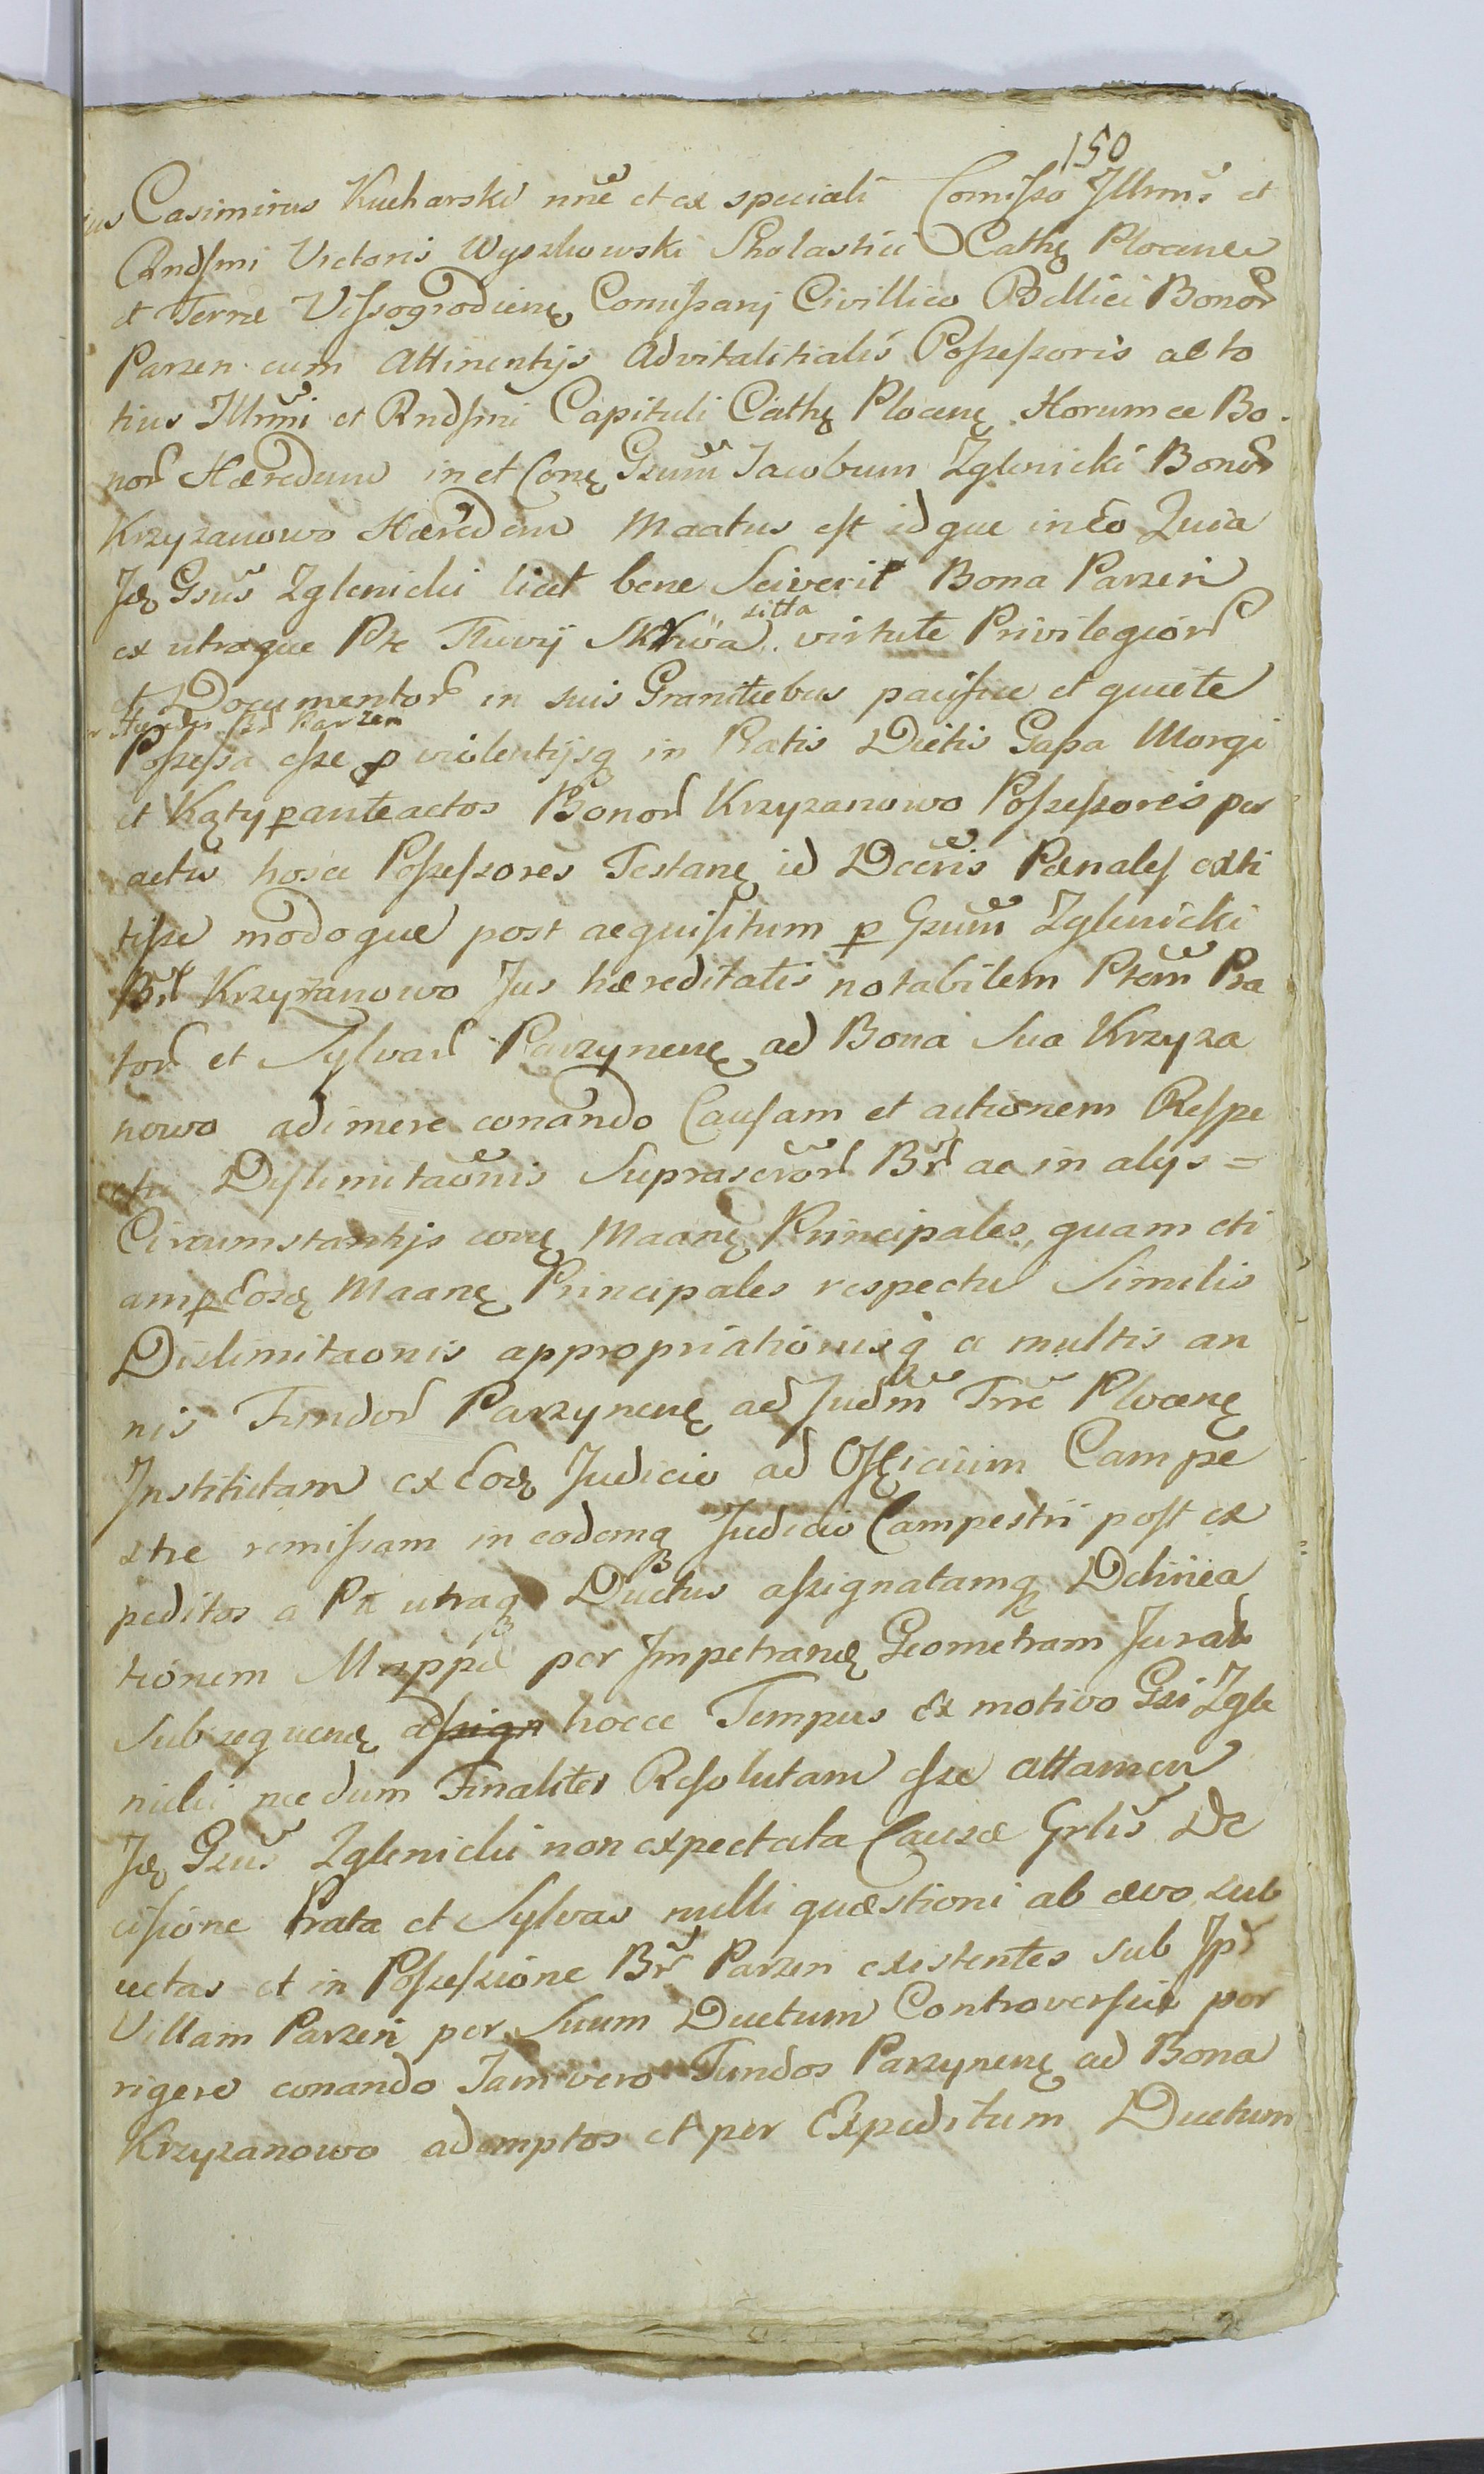 150
Casimirus Kucharski nne et ex speciali Comisso Illmi et
Rndssmi Victoris Wyszkowski Sholastici Cath Plocene
et Terræ Vissogrodiens Comissarij Civillico Bellici Bonor
Parzen cum Attinentijs Advitalitialis Possessoris ac to
tius Illmi et Rndssmi Capituli Cath Plocens Horumce Bo
nor Hæredum in et Con Gsum Jacobum Zglenicki Bonor
Krzyzanowo Hæredem Maatus est idque in Eo Quia
Id Gsus Zglenicki licet bene Sciverit Bona Parzen
sitta
ex utraque Pte Fluvij Skrwa virtute Privilegior
et Documentor in suis Granitiebus pacifice et quiete
Parzen
Possessa esse p violentijsq in Pratis Dictis Gapa Morgi
et Kąty p anteactos Bonor Krzyzanowo Possessores per
actis hosce Possessores Testan id Decris Pænales exti
tisse modoque post acquisitum p Gsum Zglenicki
Br Krzyzanowo Jus hæreditatis notabilem Ptem Pra
tor et Sylvar Parzynens ad Bona Sua Krzyza
nowo adimere conando Causam et actionem Respe
ctu Dislimitaonis Suprascror Br ac in alijs =
Circumstantijs cor Maan Principales, quam eti
am p Eosd Maan Principales respectu Similis
Dislimitaonis appropriationisq a multis an
nis Fundor Parzynens ad Judm Trre Plocens
Institutam ex Eod Judicio ad Officium Campe
stre remissam in eodemq Judicio Campestri post ex
peditos a Pte utraq Ductus assignatamq Delinea
tionem Mappæ per Impetrand Geometram Jurat
Subsequens assign hocce Tempus Ex motivo Gsi Zgle
nicki necdum Finaliter Resolutam esse attamen
Id Gsus Zglenicki non expectata Causæ Grlis De
cisione Prata et Sylvas nulli quæstioni ab ævo sub
iectas et in Possessione Br Parzen existentes sub Ips
Villam Parzen per Suum Ductum Controversiæ por
rigere conando Jam vero Fundos Parzynens ad Bona
Krzyzanowo ademptos et per Expeditum Ductum